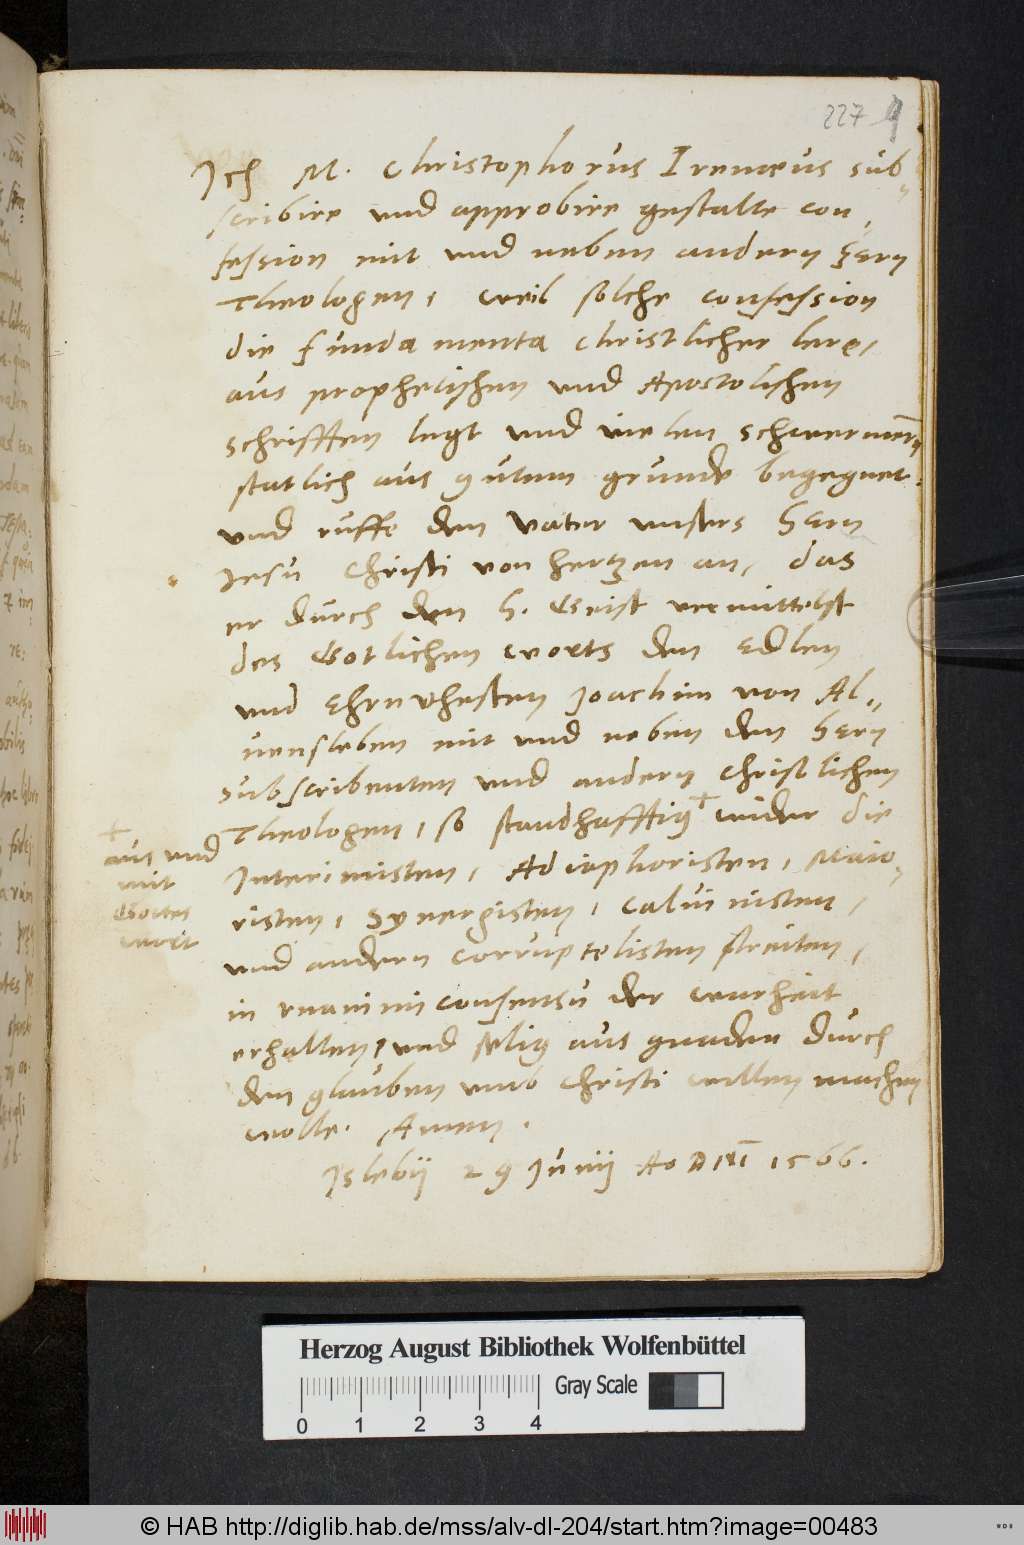 227 9
Ich M. Christophorus Irenæus sub-
scribire und approbire gestalte con,,
fession mit und neben andern Hern
Theologen, weil solche confession
die fundamenta Christlicher lere,
aus prophetischen und Apostolischen
schrifften legt und vielen schwermern
statlich aus gutem grunde begegnet.
und ruffe den Vater unsers Hern
Jesu Christi von hertzen an, das
er durch den H. Geist vermittelst
des Gotlichen worts den Edlen
und Ehrnvhesten Joachim von Al,,
uensleben mit und neben den Hern
subscribenten und andern Christlichen
Theologen, so standhafftig + wider die
+
aus und
mit
Gottes
wort
Interimisten, Adiaphoristen, Maio-
risten, Synergisten, Caluinisten,
und andern corruptelisten streiten,
in vnanimi consensu der warheit
erhalten, und selig aus gnaden durch
den glauben umb Christi willen machen
wolle. Amen.
Islebij 29 Junij Ao DNI 1566.
Herzog August Bibliothek Wolfenbüttel
Gray Scale
0 1 2 3 4
© HAB http://diglib.hab.de/mss/alv-dl-204/start.htm?image=00483